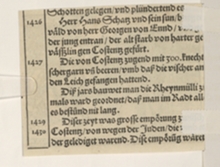 Schotten gelegen/ vnd plündertent es
1426 Herr Hans Schatz vnd sein sun/
von herr Georgen von Emd/ vnd
der jung entran/ der alt starb von harter ge
venckniß gen Costentz gefürt.
1427 Die von Costentz zugend mit 700. knecht
schergarn vß beeren/ vmb daß die vischer an
den Leich gefangen hattend.
Diß jars bauwet man die Rheynmülli z
mals ward geordnet/ daß man im Radt all
es bestünd nit lang.
1429 Diser zyt was grosse empörung z
1430 Costentz/ von wegen der Juden/ die
der gelediget warend. Dise empörung wäret